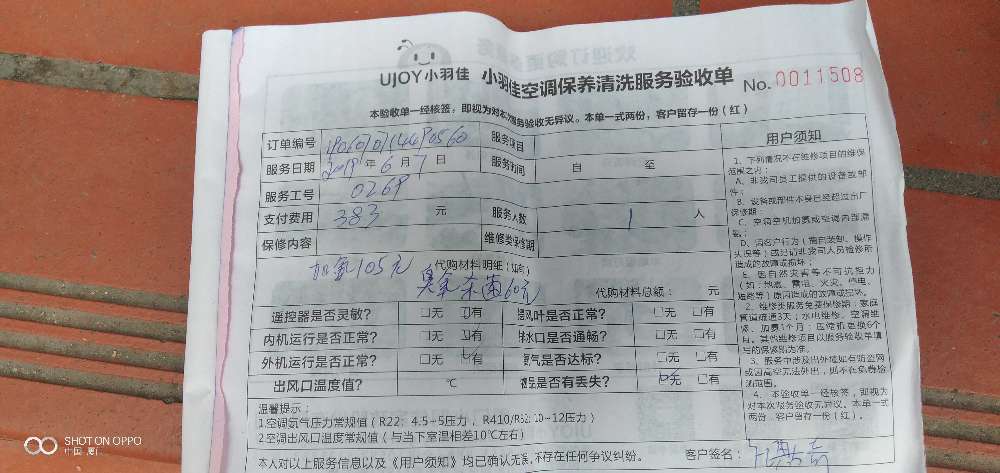 UJOY小羽佳 小羽佳空调保养清洗服务验收单 No.0011508
本验收单一经核签，即视为对本次服务验收无异议。本单一式两份，客户留存一份（红）
订单编号 服务项目
服务日期 2019年6月7日 服务时间 自 至
服务工号 0269
支付费用 383 元 服务人数 1 人
保修内容 维修类保修期
加氟105元 代购材料明细（如有）
臭氧杀菌60元 代购材料总额： 元
遥控器是否灵敏？ □无 □有 风叶是否正常？ □无 □有
内机运行是否正常？ □无 □有 排水口是否通畅？ □无 □有
外机运行是否正常？ □无 □有 氟气是否达标？ □无 □有
出风口温度值？ ℃ 是否有丢失？ □无 □有
温馨提示：
1.空调氟气压力常规值（R22：4.5~5压力，R410/R32:10~12压力）
2.空调出风口温度常规值（与当下室温相差10℃左右）
本人对以上服务信息以及《用户须知》均已确认无误，不存在任何争议纠纷。 客户签名：
用户须知
1、下列情况不在维修项目的维保
范围之内：
A、非我司员工提供的设备或部
件；
B、设备或部件本身已经超过出厂
保修期
C、空调空机加氟或空调内部漏
氟；
D、因客户行为（擅自装卸、操作
失误等）或经请非我司人员检修所
造成的故障或损坏；
E、因自然灾害等不可抗拒力
（如：地震、雷电、火灾、停电、
3、服务中涉及出外墙如有防盗网
或因高空无法外出，则不在免费检
测范围。
4、本验收单一经核签，即视为
对本次服务验收无异议。本单一式
两份，客户留存一份（红）。
SHOT ON OPPO
中国·厦门